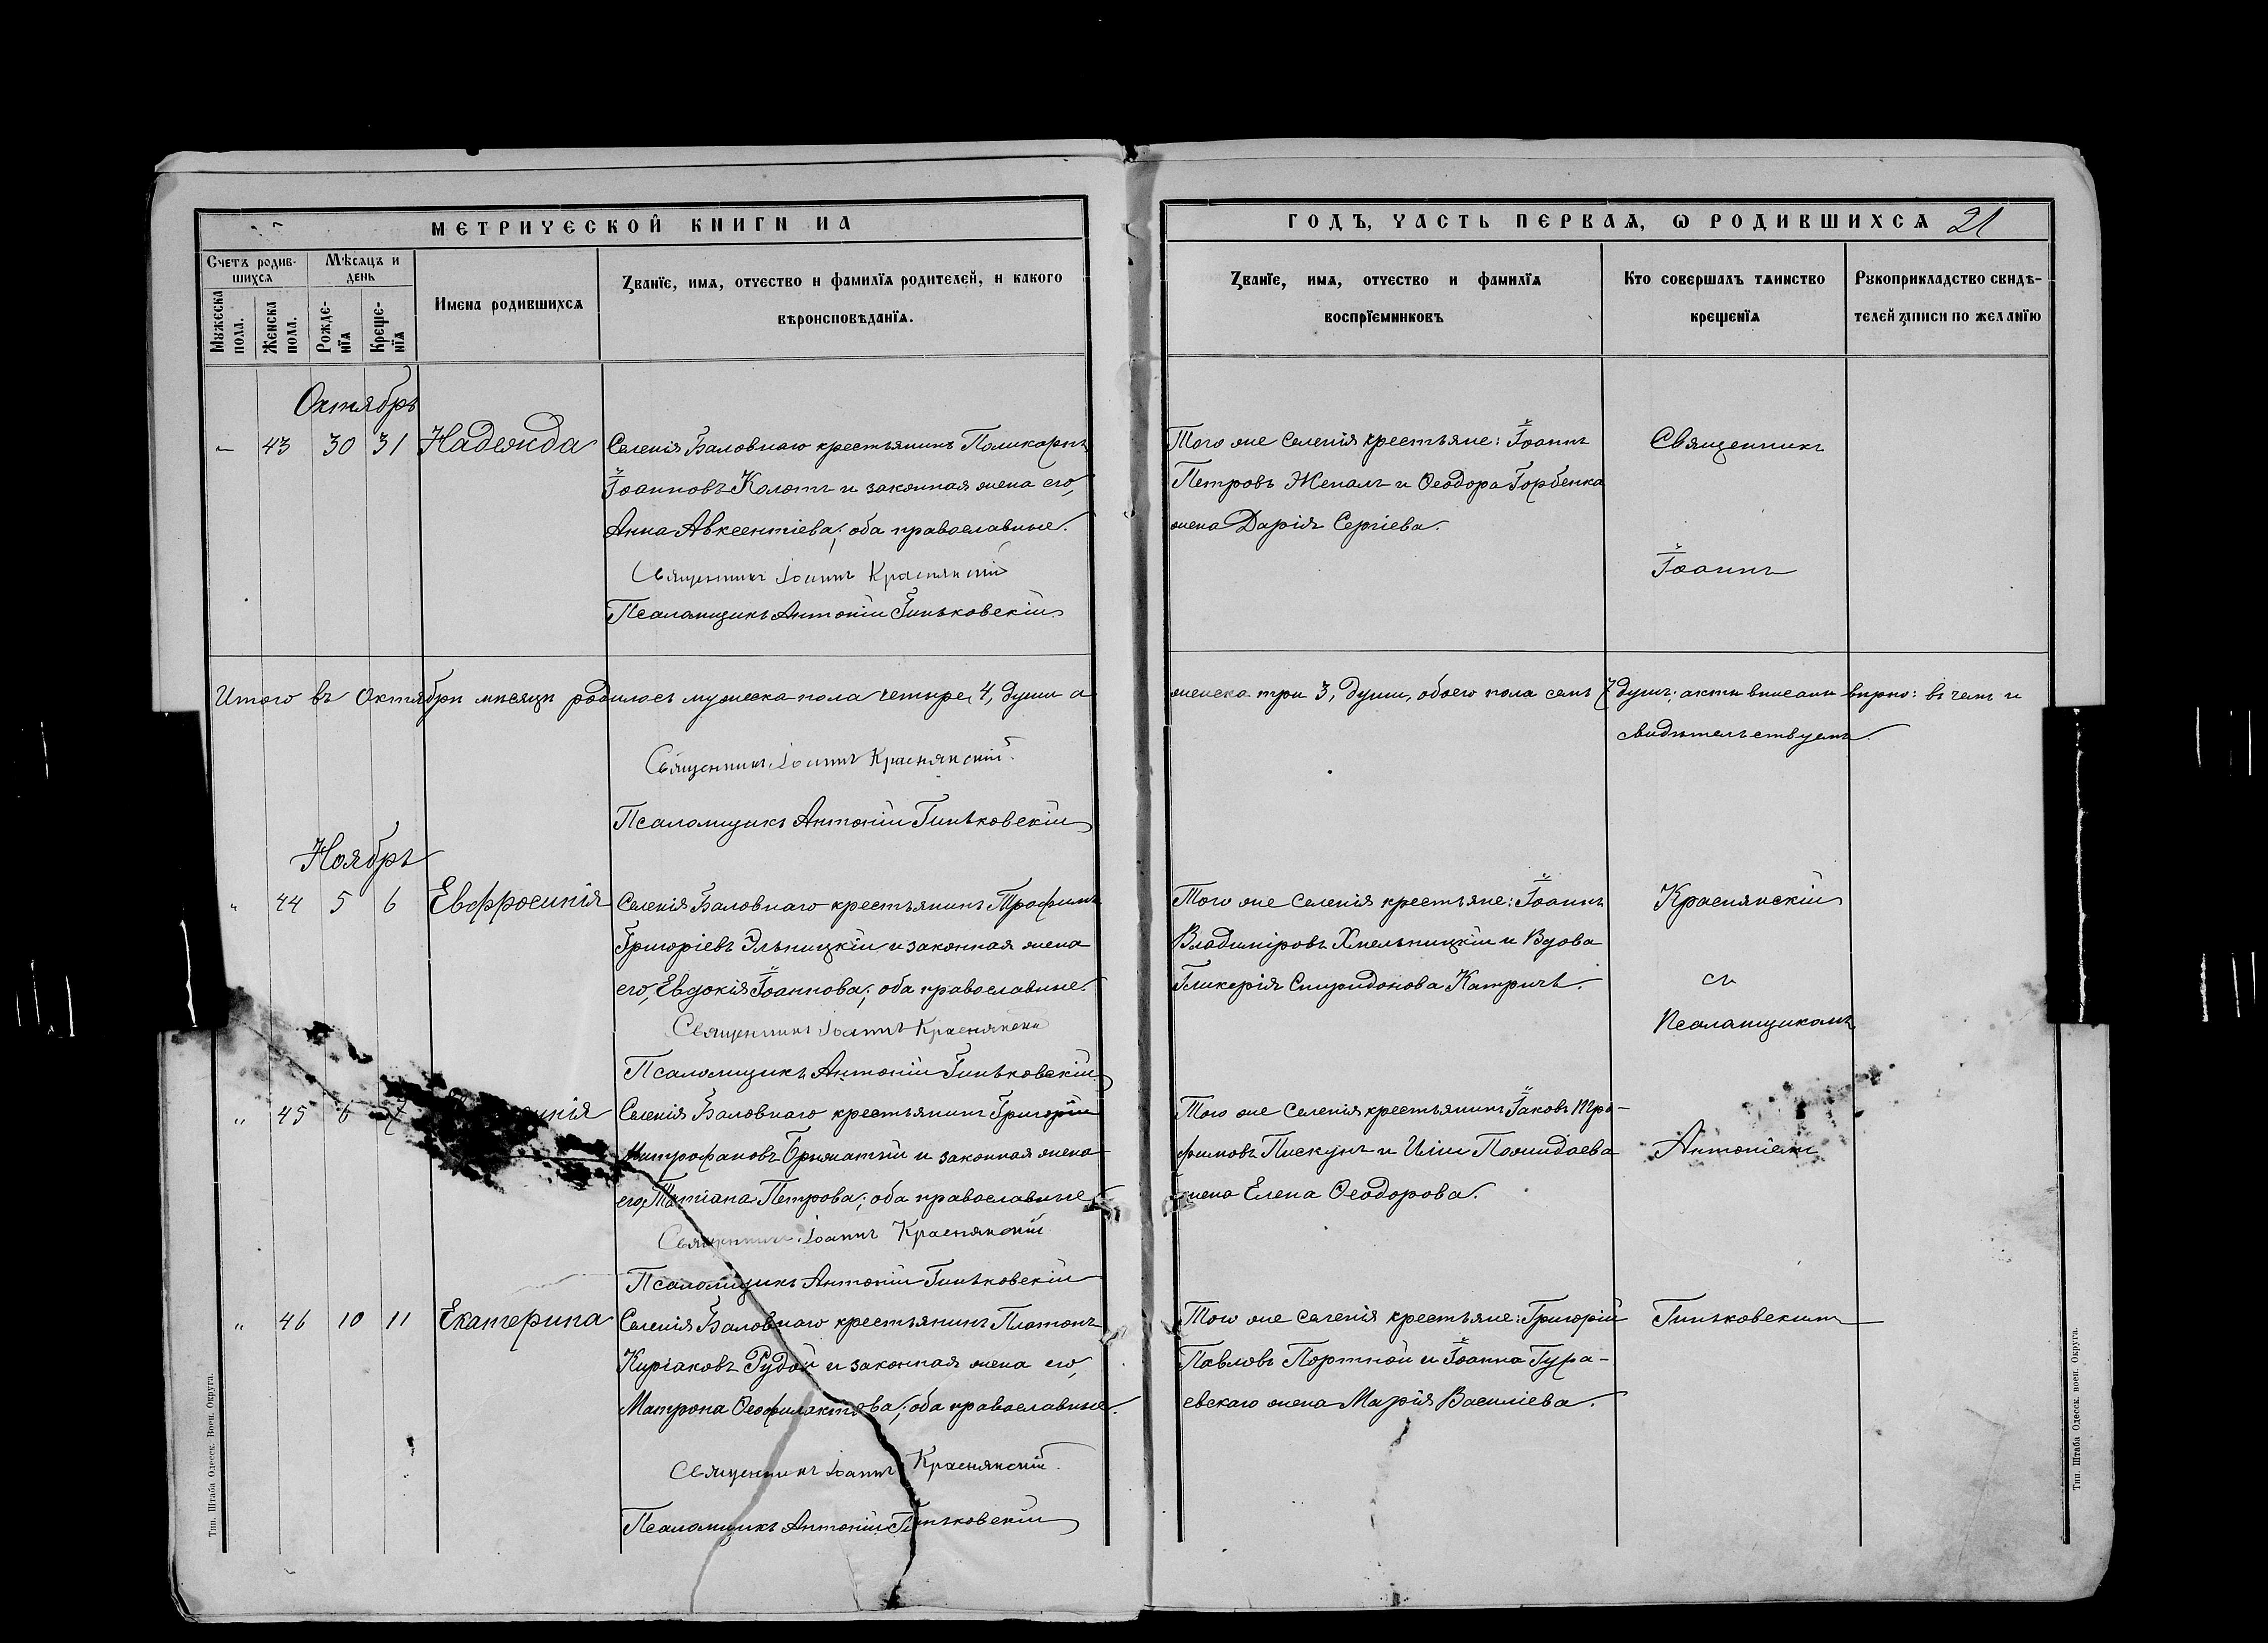 МЕТРИЧЕСКОЙ КНИГИ НА
Счетъ родив-
шихся
Мѣсяцъ и
день
Мужеска
пола.
Женска
пола.
Рожде-
нїя
Креще-
нїя
Имена родившихся
Званїе, имя, отчество и фамилїя родителей, и какого
вѣроисповѣданїя.
Октябрь
43 30 31 Надежда
Селенія Баловнаго крестьянинъ Поликарпъ
Іоанновъ Колотъ и законная жена его,
Анна Авксентіева; оба православные.
Священникъ Іоаннъ Краснянскій
Псаломщикъ Антоній Гиньковскій
Итого въ Октябрѣ мѣсяцѣ родилось мужеска пола четыре, 4, души а
Священникъ Іоаннъ Краснянскій.
Псаломщикъ Антоній Гиньковскій
Ноябрь
" 44 5 6 Евфросинія
Селенія Баловнаго крестьянинъ Трофимъ
Григоріевъ Эльницкій и законная жена
его, Евдокія Іоаннова; оба православные.
Священникъ Іоаннъ Краснянскій
Псаломщикъ Антоній Гиньковскій
" 45 6 7
Селенія Баловнаго крестьянинъ Григорій
Митрофановъ и законная жена
его, Татіана Петрова; оба православные
Священникъ Іоаннъ Краснянскій
Псаломщикъ Антоній Гиньковскій
" 46 10 11 Екатерина
Селенія Баловнаго крестьянинъ Платонъ
Киріаковъ Рудой и законная жена его,
Матрона Ѳеофилактова; оба православные.
Священникъ Іоаннъ Краснянскій.
Псаломщикъ Антоній Гиньковскій
Тип. Штаба Одесск. Воен. Округа.
ГОДЪ, ЧАСТЬ ПЕРВАЯ, Ѡ РОДИВШИХСЯ 21
Званїе, имя, отчество и фамилїя
воспрїемниковъ
Кто совершалъ таинство
крещенїя
Рукоприкладство свидѣ-
телей записи по желанїю
Того же селенія крестьяне: Іоаннъ
Петровъ и Ѳеодора Горбенка
жена Дарія Сергіева.
Священникъ
Іоаннъ
женска три 3, души, обоего пола семь 7 душъ; акты вписаны вѣрно: въ чемъ и
свидѣтельствуемъ.
Того же селенія крестьяне: Іоаннъ
Владиміровъ Хмельницкій и вдова
Гликерія Спиридонова Катричъ.
Краснянскій
съ
псаломщикомъ
Того же селенія крестьянинъ Іаковъ Тро-
фимовъ Пискунъ и Иліи
жена Елена Ѳеодорова.
Антоніемъ
Того же селенія крестьяне: Григорій
Павловъ Портной и Іоанна Гура-
евскаго жена Марія Василіева.
Гиньковскимъ
Тип. Штаба Одесск. воен. Округа.